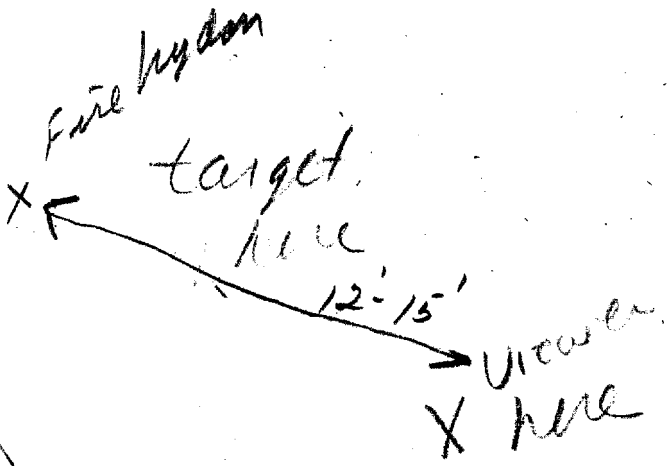 Fire hydran
X
target
here
12'-15'
Viewer
X here